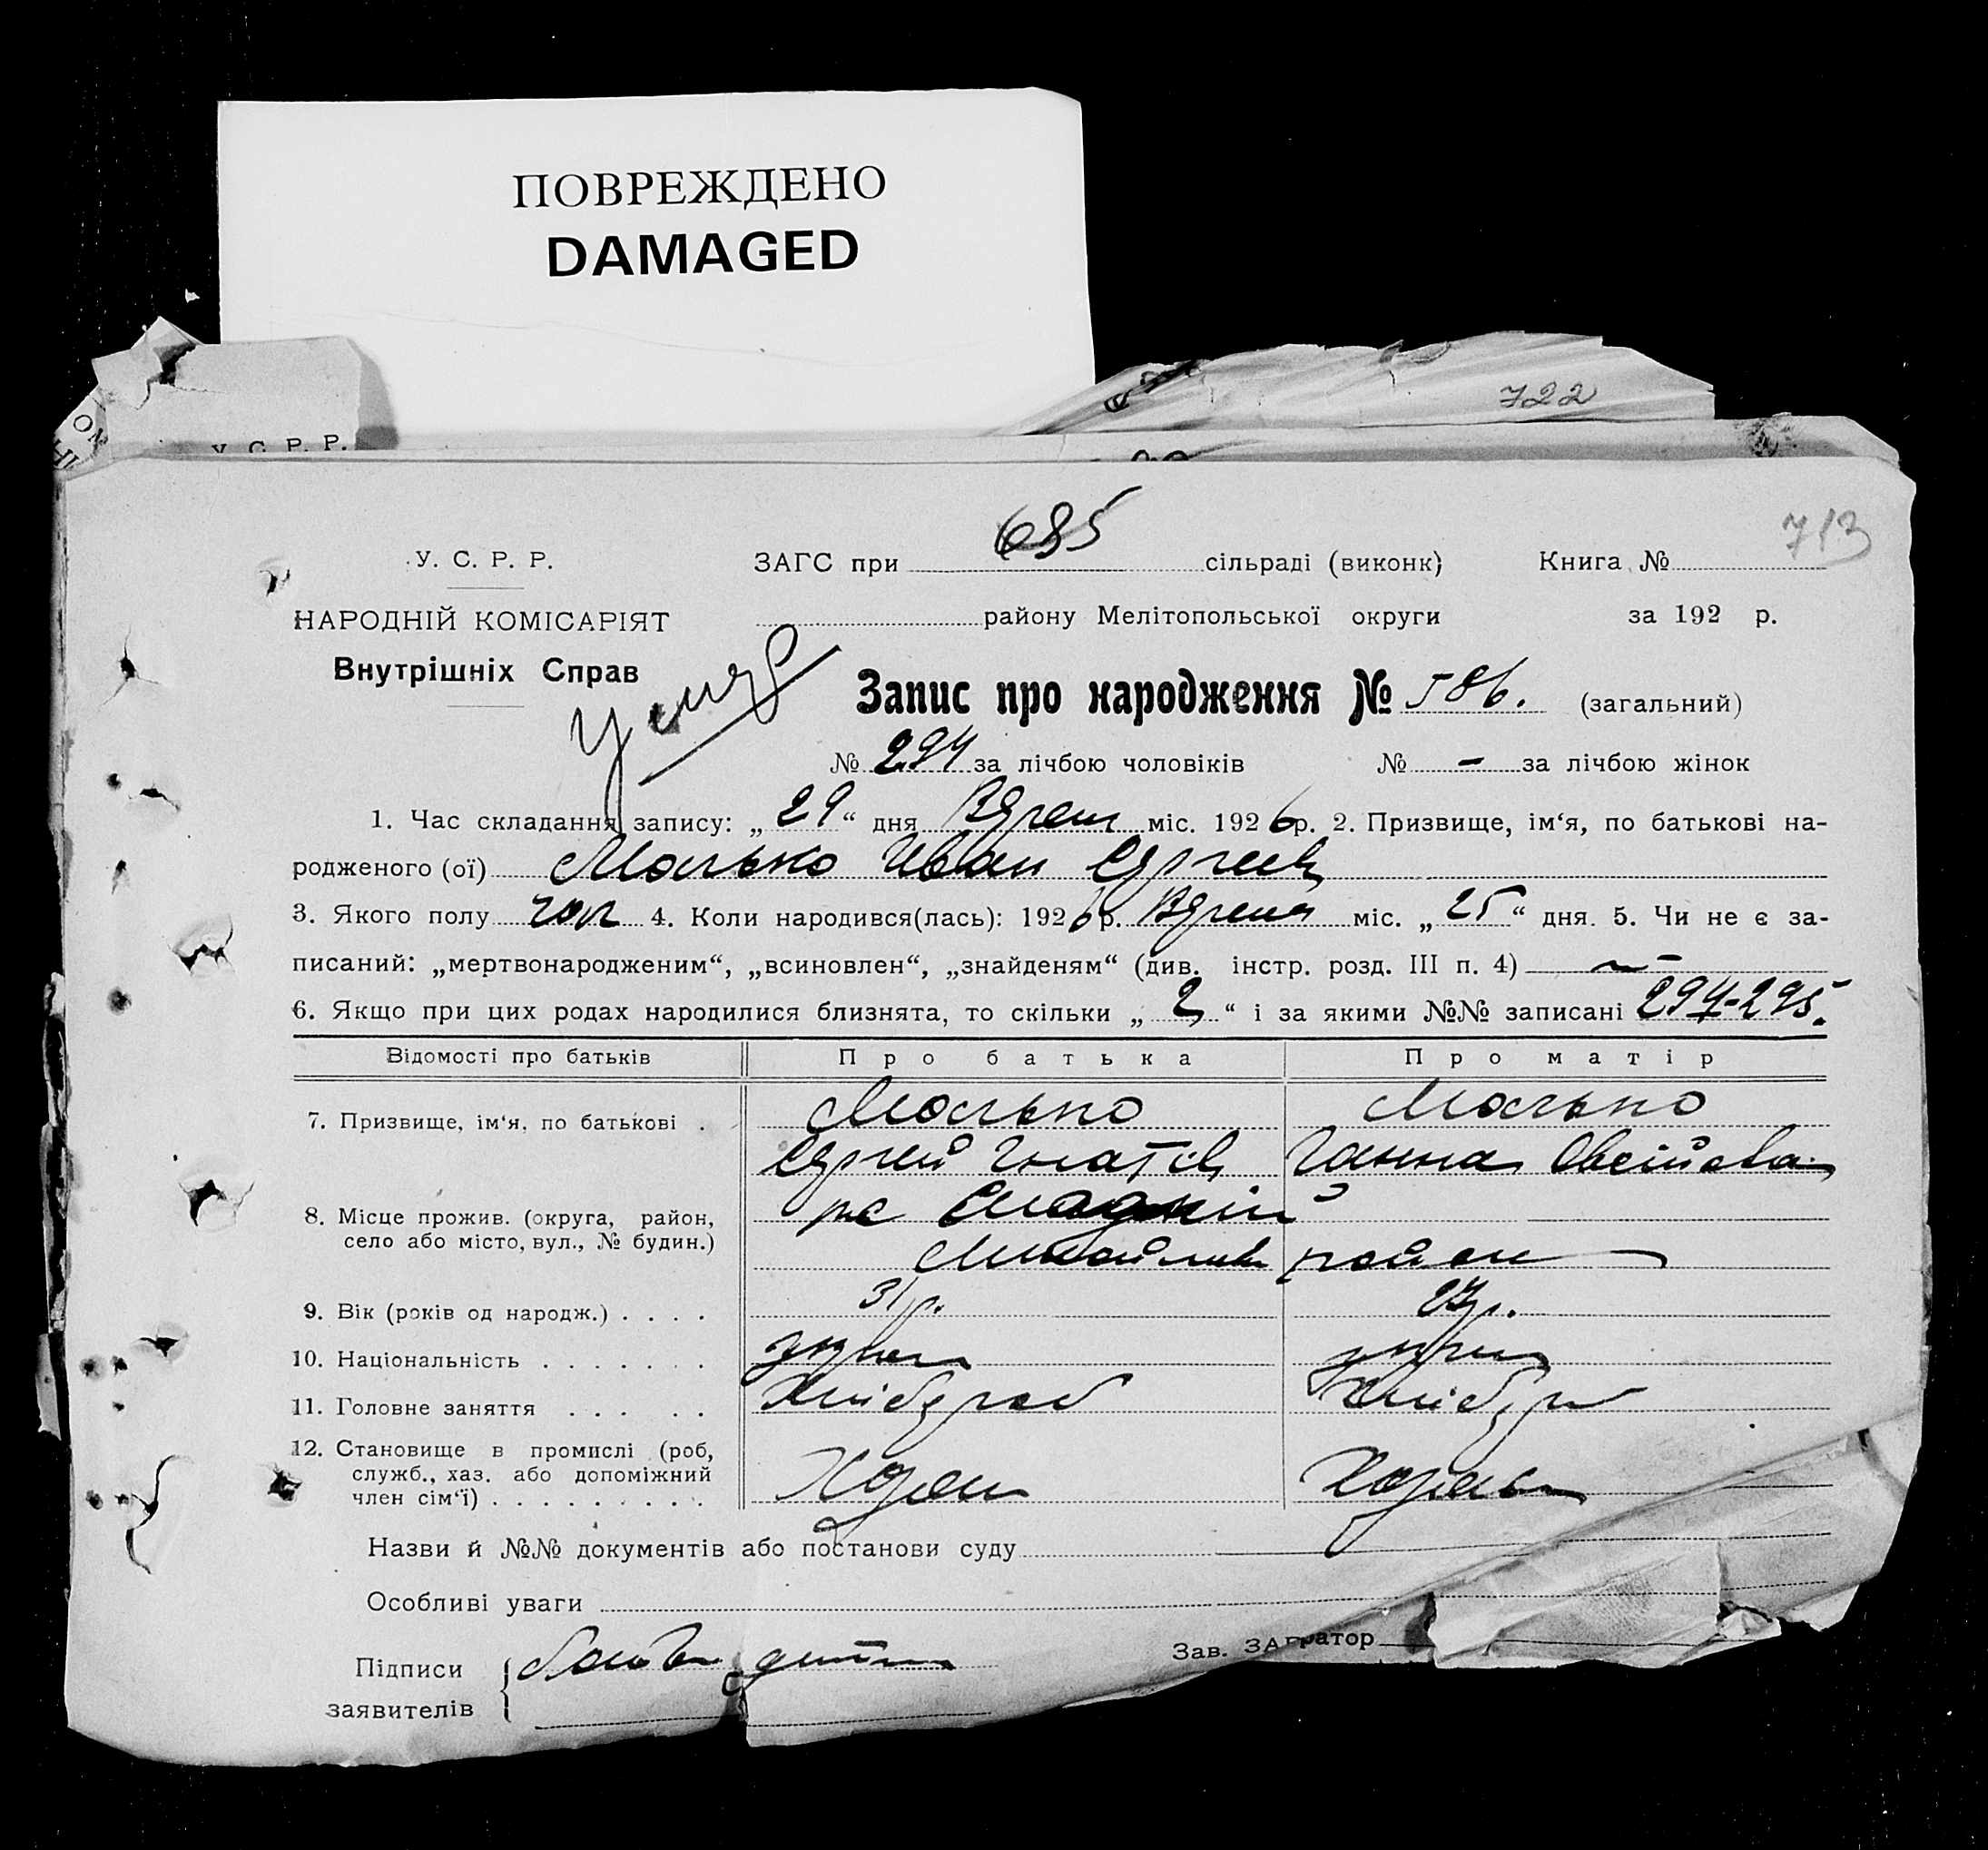 ПОВРЕЖДЕНО
DAMAGED
722
У. С. Р. Р.
713
У. С. Р. Р.
ЗАГС при 685 сільраді (виконк) Книга №
НАРОДНІЙ КОМІСАРІЯТ
району Мелітопольської округи за 192 р.
Внутрішніх Справ
Запис про народження № 586. (загальний)
№ 294 за лічбою чоловіків № - за лічбою жінок
1. Час складання запису: „ 29 “ дня міс. 1926 р. 2. Призвище, ім‘я, по батькові на-
родженого (ої) Малько Иван Сергеев
3. Якого полу чол 4. Коли народився(лась): 1926 р. міс. „ 25 “ дня. 5. Чи не є за-
писаний: „мертвонародженим“, „всиновлен“, „знайденям“ (див. інстр. розд. III п. 4) —
6. Якщо при цих родах народилися близнята, то скільки „ 2 “ і за якими №№ записані 294-295.
Відомості про батьків Про батька Про матір
7. Призвище, ім‘я, по батькові . Малько Малько
Сергей Гнатів Ганна
8. Місце прожив. (округа, район,
село або місто, вул., № будин.)
район
9. Вік (років од народж.) . . . . 31 р. 27 р.
10. Національність . . . . . . .
11. Головне заняття . . . . . Хлібороб Хлібор
12. Становище в промислі (роб,
служб., хаз. або допоміжний
член сім‘ї) . . . . . . . . .
Назви й №№ документів або постанови суду
Особливі уваги
Підписи
заявителів
Зав. ЗАг ратор